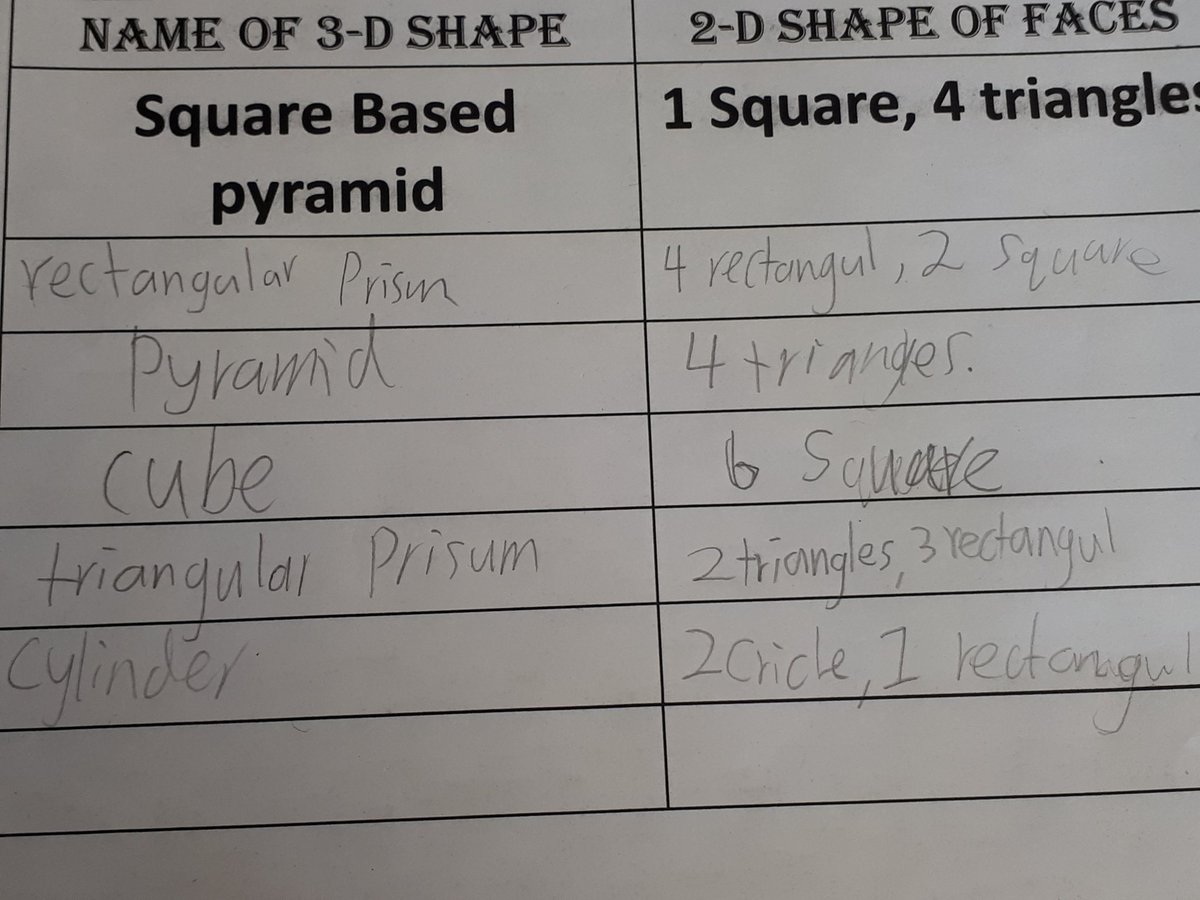 NAME OF 3-D SHAPE
2-D SHAPE OF FACES
Square Based
pyramid
1 Square, 4 triangles
rectangular Prisum
4 rectangul, 2 square
Pyramid
4 triangles.
cube
6 Square
triangular Prisum
2 triangles, 3 rectangul
Cylinder
2 Cricle, 1 rectangul